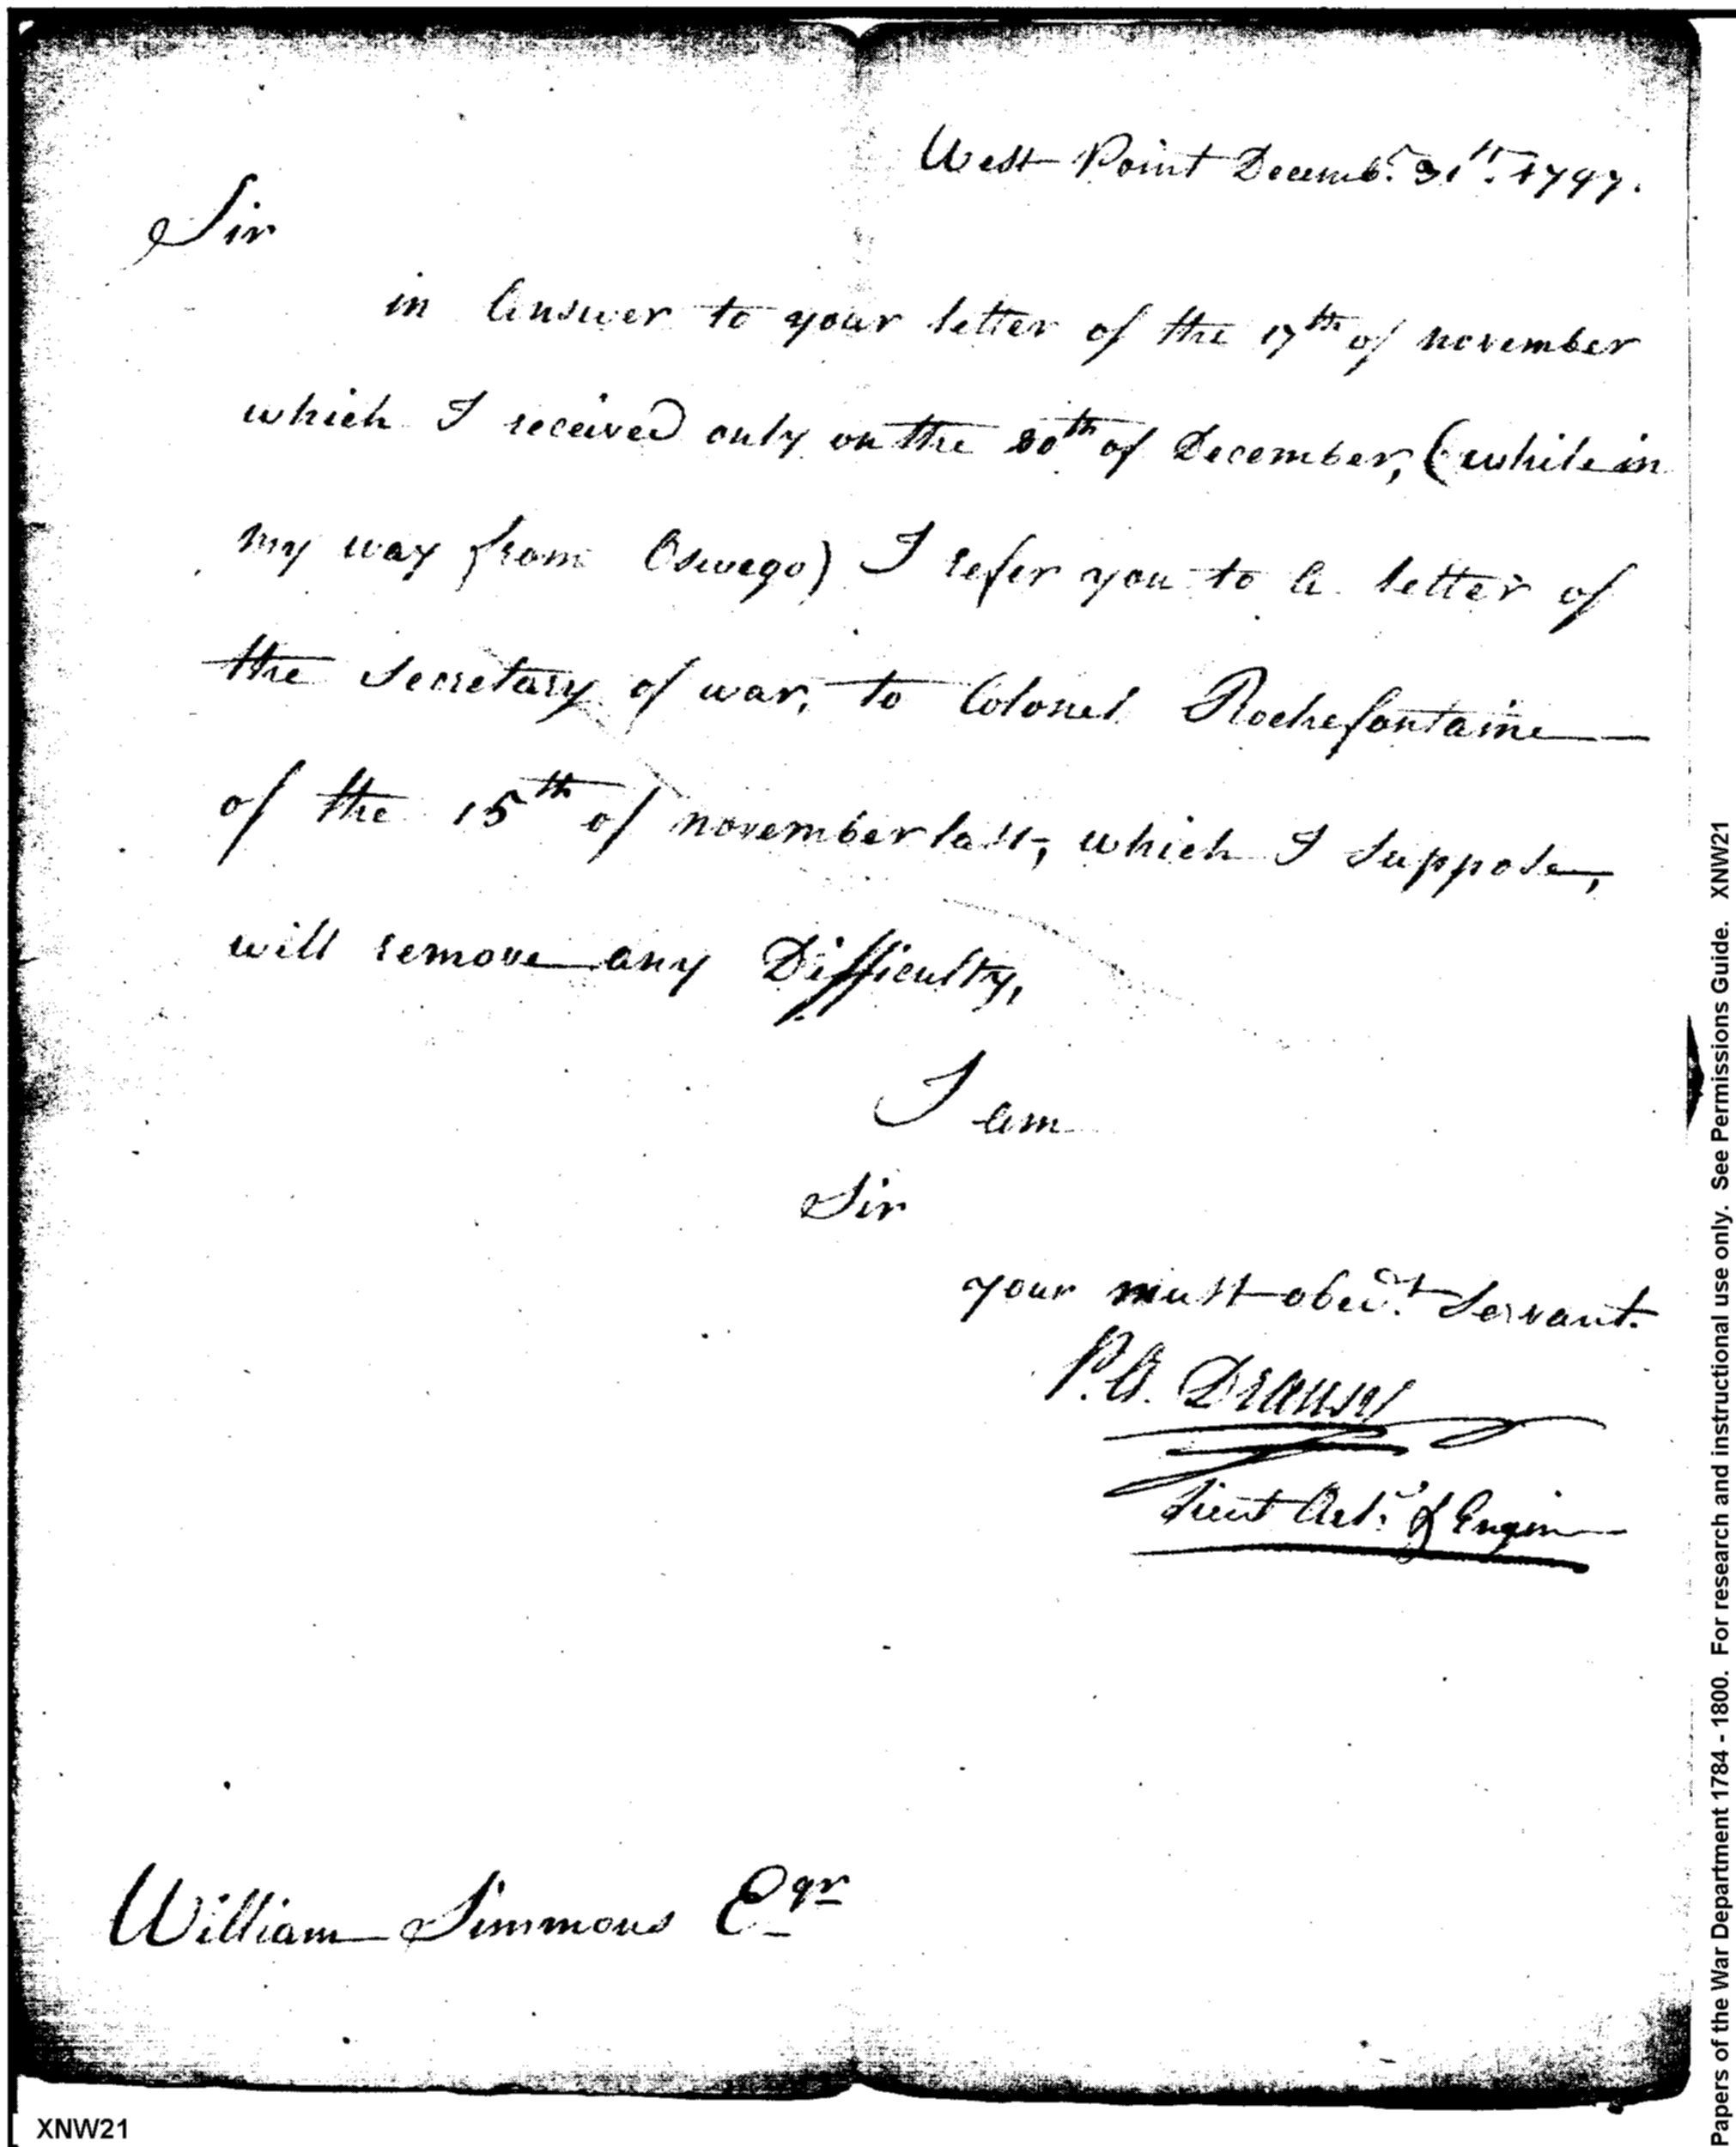 West Point Decemb.r 31st. 1797.
Sir
in Answer to your letter of the 17th of november
which I received only on the 20th of December, (while in
my way from Oswego) I refer you to a letter of
the Secretary of war, to Colonel Rochefontaine
of the 15th of november last, which I suppose,
will remove any Difficulty,
I am
Sir
your most obed.t Servant.
P.A. Dransy
Lieut Art.y & Engin
William Simmons Eqr
XNW21
Papers of the War Department 1784 - 1800. For research and instructional use only. See Permissions Guide. XNW21